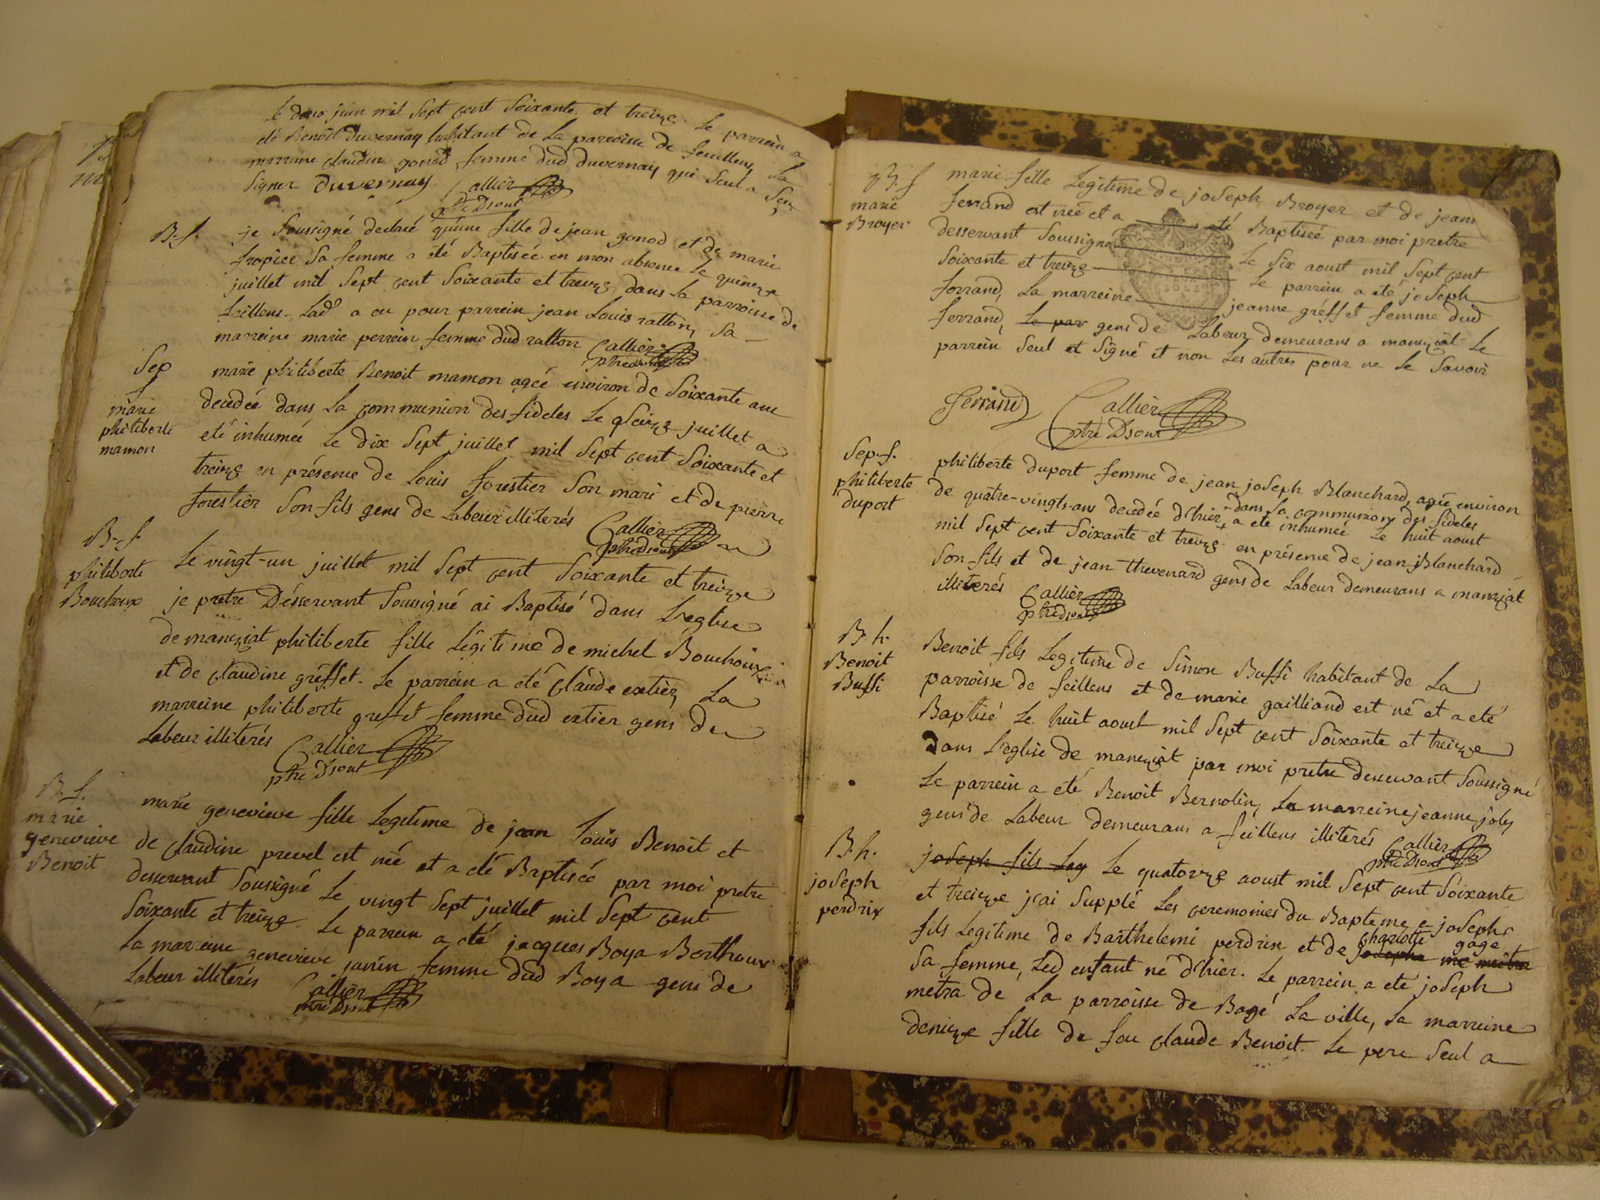 le deux juin mil Sept cent Soixante et treize. le parrein a
été Benoît Duvernay habitant de la parroisse de feillens, la
marraine claudine gonod femme dud duvernay qui Seul a Scu
signer Duvernay Callier
ptre Dsent
B. f. je Soussigné declare qu'une fille de jean gonod et de marie
tropier Sa femme a été Baptisée en mon absence le quinze
juillet mil Sept cent Soixante et treize dans la parroisse de
feillens. Lad a eu pour parrein jean Louis ratton, Sa
marreine marie perrein femme dud ratton Callier
ptre dsent
Sep
f
marie
philiberte
mamon
marie philiberte Benoit mamon agée environ de Soixante ans
decedée dans la communion des fideles le Seize juillet a
eté inhumée le dix Sept juillet mil Sept cent Soixante et
treize en présence de Louis forestier Son mari et de pierre
forestier Son fils gens de Labeur illiterés Callier
ptre dsent
B. f.
philiberte
Bouchoux
Le vingt-un juillet mil Sept cent Soixante et treize
je pretre Desservant Soussigné ai Baptisé dans L'eglise
de manziat philiberte fille Légitime de michel Bouchoux
et de claudine gréffet. Le parrein a été claude extier, La
marreine philiberte greffet femme dud extier gens de
Labeur illiterés Callier
ptre Dsent
B. f.
marie
genevieve
Benoit
marie genevieve fille Legitime de jean Louis Benoit et
de claudine prevel est née et a été Baptisée par moi pretre
desservant Soussigné Le vingt Sept juillet mil Sept cent
Soixante et treize. Le parrein a été jacques Boya Berthoux
La marreine genevieve janin femme dud Boya gens de
Labeur illiterés Callier
ptre Dsent
B. f
marie
Broyer
marie fille Legitime de joseph Broyer et de jeanne
ferrand est née et a été Baptisée par moi pretre
desservant Soussigné Le Six aoust mil Sept cent
Soixante et treize Le parrein a été joseph
ferrand, La marreine jeanne gréffet femme dud
ferrand, Le par gens de Labeur demeurans a manziat Le
parrein Seul et Signé et non Les autres pour ne le Savoir
ferrand Callier
ptre Dsent
Sep. f.
philiberte
duport
philiberte duport femme de jean joseph Blanchard agée environ
de quâtre-vingts-ans decedée d'hier dans la communion des fideles
a été inhumée Le huit aoust
mil Sept cent Soixante et treize en présence de jean Blanchard
Son fils et de jean thevenard gens de Labeur demeurans a manziat
illiterés Callier
ptre dsent
B. h.
Benoit
Buffi
Benoit fils Legitime de Simon Buffi habitant de La
parroisse de feillens et de marie gailliand est né et a été
Baptisé Le huit aoust mil Sept cent Soixante et treize
dans L'eglise de manziat par moi pretre desservant Soussigné
Le parrein a été Benoit Bernolin, La marreine jeanne joly
gens de Labeur demeurans a feillens illiterés Callier
ptre Dsent
B. h.
joseph
perdrix
joseph fils Leg Le quatorze aoust mil Sept cent Soixante
et treize j'ai Supplé Les ceremonies du Bapteme a joseph
fils Legitime de Barthelemi perdrix et de charlotte gage
Sa femme, Led enfant né d'hier. Le parrein a été joseph
metra de La parroisse de Bagé La ville, La marreine
denize fille de feu claude Benoit. Le pere Seul a